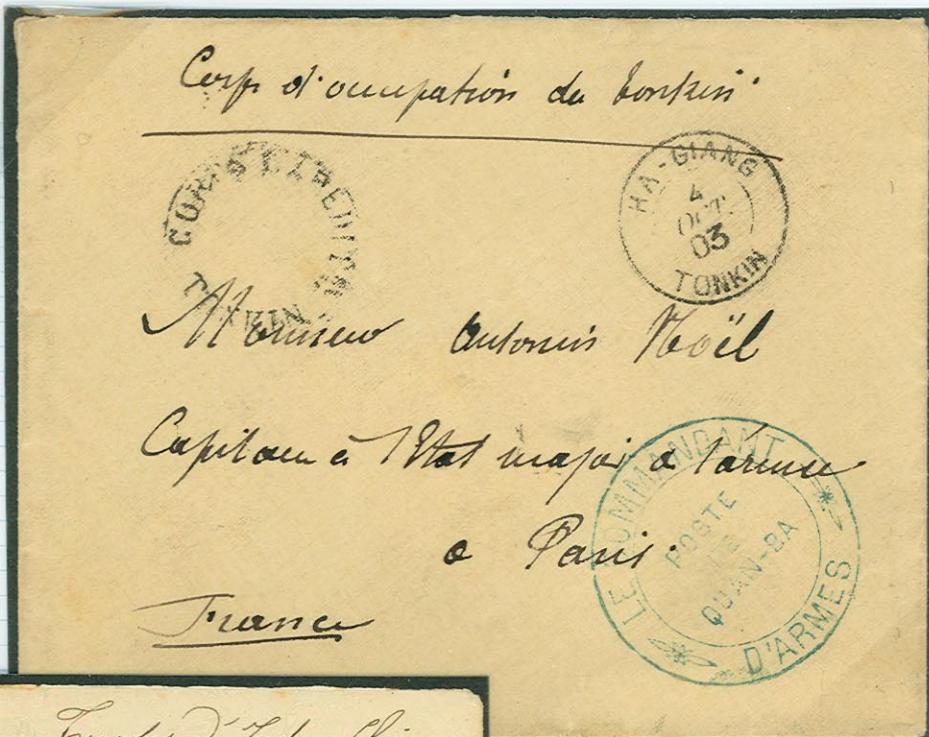 Corps d'occupation du Tonkin
CORPS EXPEDITI
TONKIN
HA-GIANG
4
OCT.
03
TONKIN
Monsieur Antonin Noël
Capitaine à l'Etat major de l'armée
a Paris.
France
LE COMMANDANT
D'ARMES
POSTE
DE
QUAN-BA